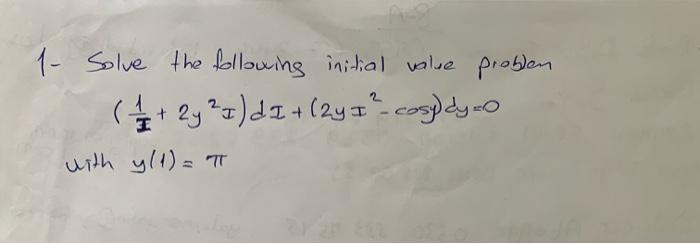 1- Solve the following initial value problem
(1/x + 2y²x)dx + (2yx² - cosy)dy=0
with y(1) = π